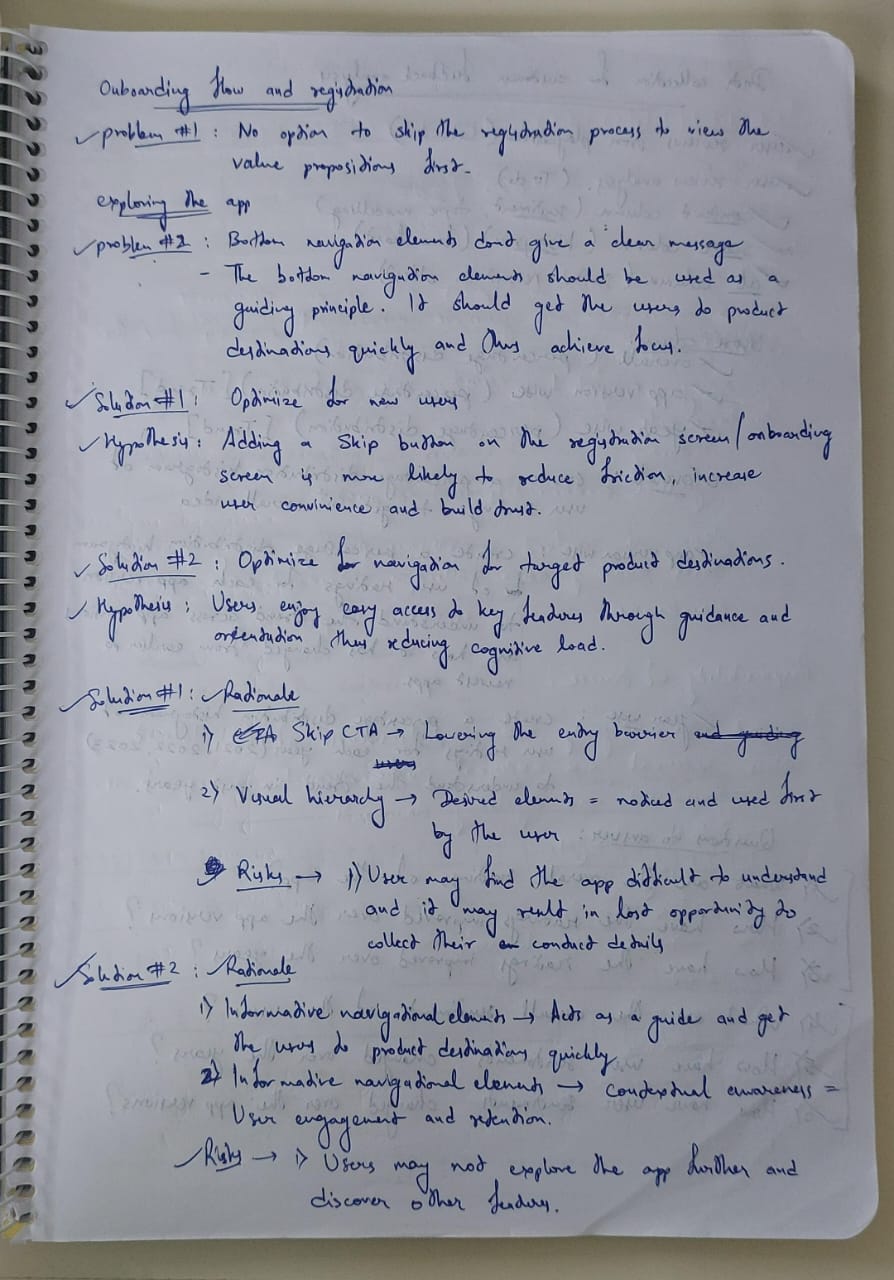 Onboarding flow and registration
✓ problem #1 : No option to skip the registration process to view the
value propositions first.
exploring the app
✓ problem #2 : Bottom navigation elements dont give a clear message
- The bottom navigation elements should be used as a
guiding principle. It should get the users to product
destinations quickly and thus achieve focus.
✓ Solution #1 : Optimize for new users
✓ Hypothesis : Adding a Skip button on the registration screen/onboarding
screen is more likely to reduce friction, increase
user convinience and build trust.
✓ Solution #2 : Optimize for navigation for target product destinations.
✓ Hypothesis : Users enjoy easy access to key features through guidance and
orientation thus reducing cognitive load.
✓ Solution #1 : ✓ Rationale
1) Skip CTA → Lowering the entry barrier and guiding
users
2) Visual hierarchy → Desired elements = noticed and used first
by the user
Risks → 1) User may find the app difficult to understand
and it may result in lost opportunity to
collect their conduct details
✓ Solution #2 : ✓ Rationale
1) Informative navigational elements → Acts as a guide and get
the users to product destinations quickly
2) Informative navigational elements → contextual awareness =
User engagement and retention.
✓ Risks → 1) Users may not explore the app further and
discover other features.